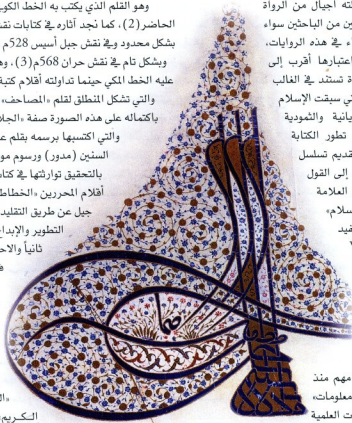 ته أجيال من الرواة
ين من الباحثين سواء
اء في هذه الروايات،
اعتبارها أقرب إلى
ة تستند في الغالب
تي سبقت الإسلام
يانية والثمودية
تطور الكتابة
قديم تسلسل
إلى القول
العلامة
سلام»
فيد
مهم منذ
معلومات،
ت العلمية
وهو القلم الذي يكتب به الخط الكوي
الحاضر(2)، كما نجد آثاره في كتابات نقش
بشكل محدود وفي نقش جبل أسيس 528م
وبشكل تام في نقش حران 568م(3)، وه
عليه الخط المكي حينما تداولته أقلام كتبة
والتي تشكل المنطلق لقلم «المصاحف»
باكتماله على هذه الصورة صفة «الجلا
والتي اكتسبها برسمه بقلم ع
السنين (مدور) ورسوم مو
بالتحقيق توارثتها في كتا
أقلام المحررين «الخطاط
جيل عن طريق التقليد
التطوير والإبدا
ثانياً والاح
ف
«ال
الكريم»